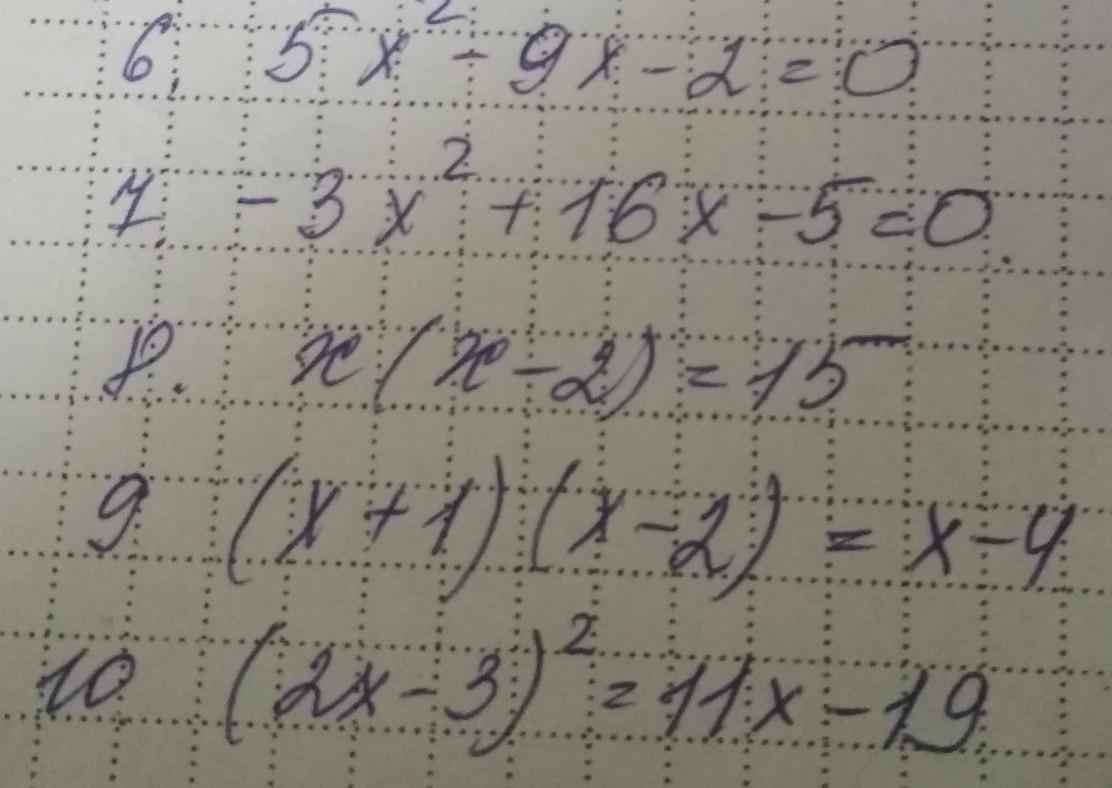 6. 5x² - 9x - 2 = 0
7. - 3x² + 16x - 5 = 0.
8. x(x - 2) = 15
9 (x + 1)(x - 2) = x - 4
10 (2x - 3)² = 11x - 19